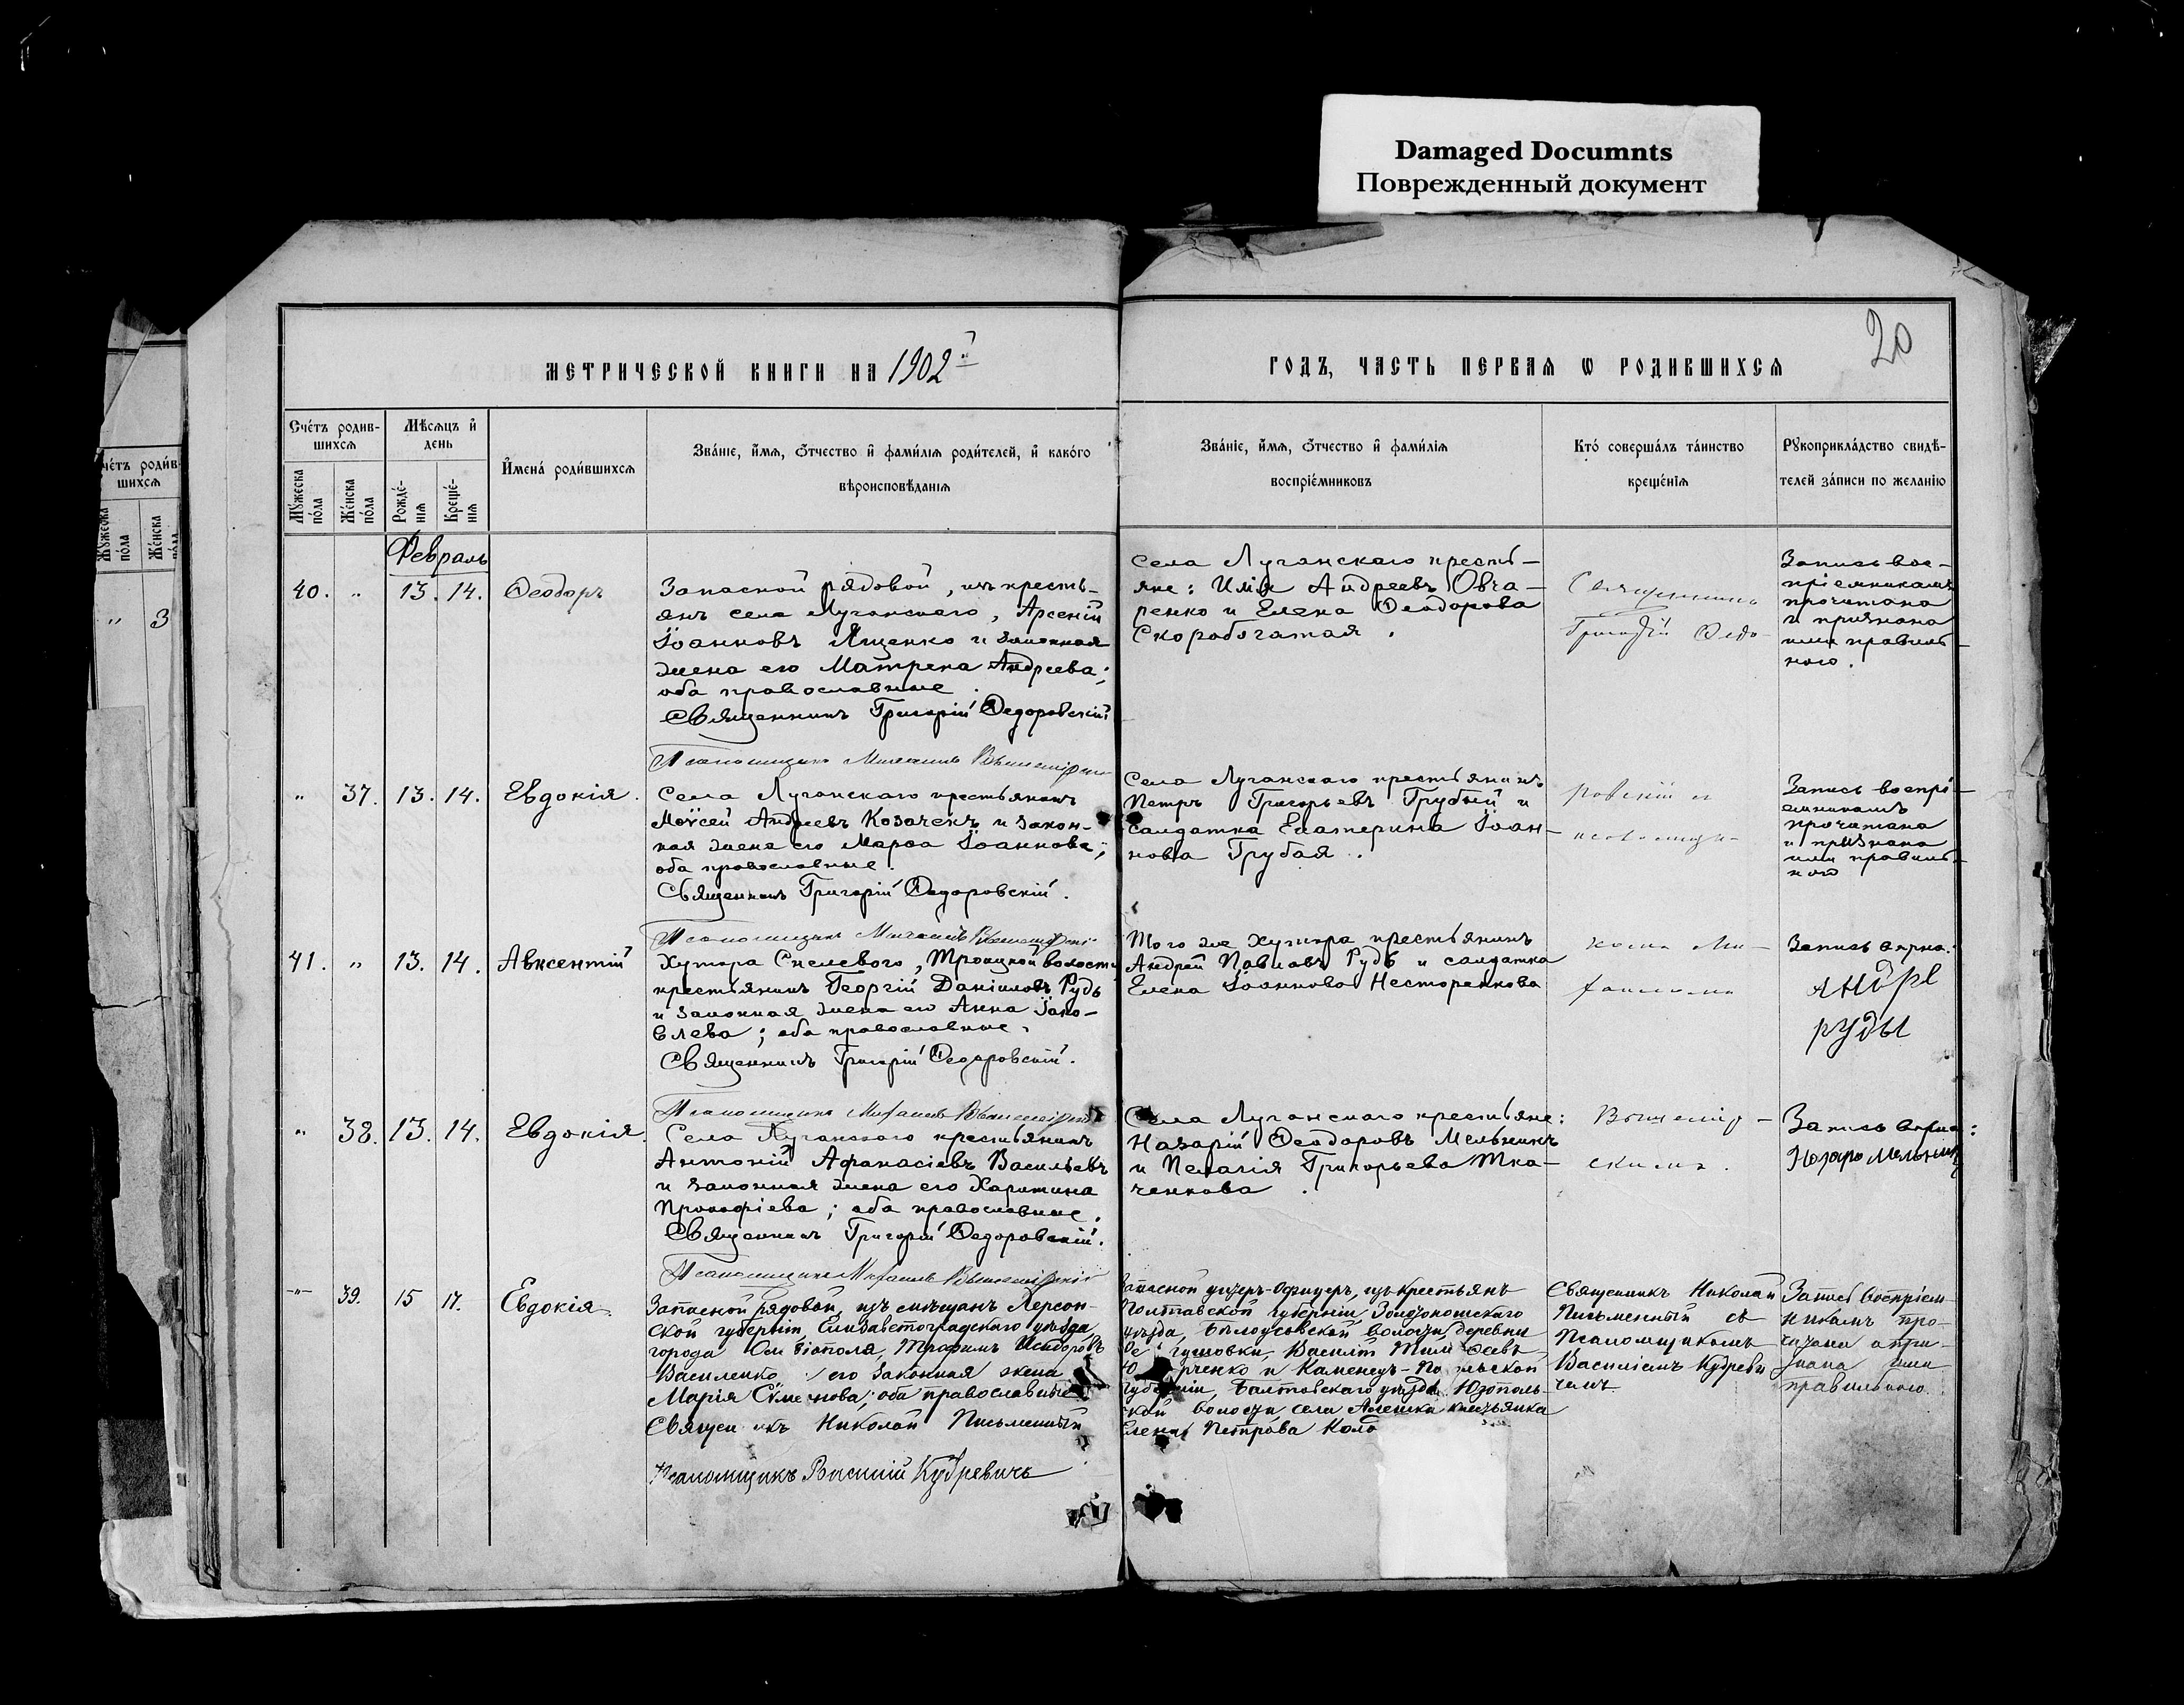 Damaged Documnts
Поврежденный документ
20
МЕТРИЧЕСКОЙ КНИГИ НА 1902й
ГОДЪ, ЧАСТЬ ПЕРВАЯ Ѡ РОДИВШИХСЯ
Счетъ родив-
шихся
Мѣсяцъ и
день
Имена родившихся
Званіе, имя, отчество и фамилія родителей, и какого
вѣроисповѣданія
Званіе, имя, отчество и фамилія
воспріемниковъ
Кто совершалъ таинство
крещенія
Рукоприкладство свидѣ-
телей записи по желанію
Мужеска
пола
Женска
пола
Рожде-
нія
Креще-
нія
четъ родив-
шихся
Мужеска
пола
Женска
пола
" 3
Февраль
40. " 13. 14. Ѳеодоръ
Запасной рядовой, изъ кресть-
янъ села Луганскаго, Арсеній
Іоанновъ Ященко и законная
жена его Матрена Андреева;
оба православные.
Священникъ Григорій Ѳедоровскій
Псаломщикъ Михаилъ
Села Луганскаго кресть-
яне: Илія Андреевъ Овча-
ренко и Елена Ѳеодорова
Скоробогатая.
Священникъ
Григорій Ѳедо-
Запись вос-
пріемникамъ
прочитана
и признана
ими правиль-
ного.
" 37. 13. 14. Евдокія.
Села Луганскаго крестьянинъ
Моѵсей Андреевъ Козаченъ и закон-
ная жена его Марѳа Іоаннова;
оба православные.
Священникъ Григорій Ѳедоровскій.
Псаломщикъ Михаилъ
Села Луганскаго крестьянинъ
Петръ Григорьевъ Грубый и
солдатка Екатерина Іоан-
нова Грубая.
ровскій и
псаломщи-
Запись воспрі-
емникамъ
прочитана
и признана
ими правиль-
ного
41. " 13. 14. Авксентій
Хутора Троицкой волости
крестьянинъ Георгій Даніиловъ Рудь
и законная жена его Анна Іако-
влева; оба православные.
Священникъ Григорій Ѳедоровскій.
Псаломщикъ Михаилъ
Того же хутора крестьянинъ
Андрей Павловъ Рудь и солдатка
Елена Іоаннова Несторенкова
комъ Ми-
хаиломъ
Запись вѣрна:
Андре
руды
" 38. 13. 14. Евдокія.
Села Луганскаго крестьянинъ
Антоній Аѳанасіевъ Васильевъ
и законная жена его Харитина
Прокофіева; оба православные.
Священникъ Григорій Ѳедоровскій.
Псаломщикъ Михаилъ
Села Луганскаго крестьяне:
Назарій Ѳеодоровъ Мельникъ
и Пелагія Григорьева Тка-
ченкова.
скимъ.
Запись вѣрна:
Назаръ Мельник
-"- 39. 15 17. Евдокія.
Запасной рядовой, изъ мѣщанъ Херсон-
ской губерніи, Елисаветоградскаго уѣзда,
города Трофимъ Исидоровъ
Василенко его законная жена
Марія оба православные
Священ къ Николай Письменный
Псаломщикъ Василій Кудревичъ
Запасной унтеръ-офицеръ, изъ крестьянъ
Полтавской губерніи, Золотоношскаго
уѣзда, Бѣлоусовской волости, деревни
Василій
и Каменецъ-По льской
губерніи, Балтовскаго уѣзда, Юзополь-
ской волости села крестьянка
Елена Петрова Коло
Священникъ Николай
Письменный съ
Псаломщикомъ
Василіемъ Кудреви
чемъ
Запись воспріем-
никамъ про-
читана и при-
знана ими
правильною.